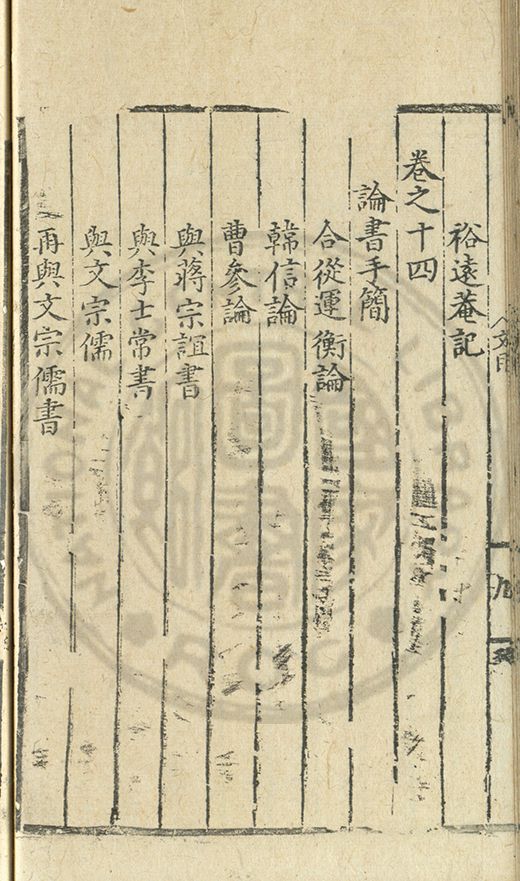 裕遠菴記
卷之十四
論書手簡
合從連衡論
韓信論
曹參論
與蔣宗誼書
與李士常書
與文宗儒
再與文宗儒書